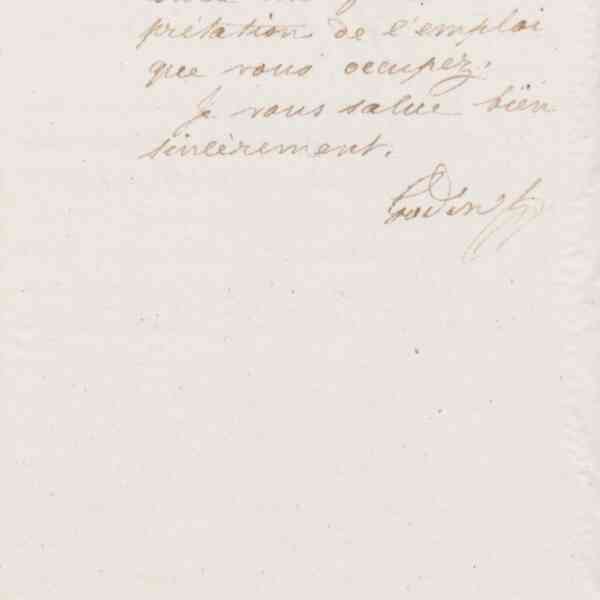 prétation de l'emploi
que vous occupez.
Je vous salue bien
sincèrement.
Godin